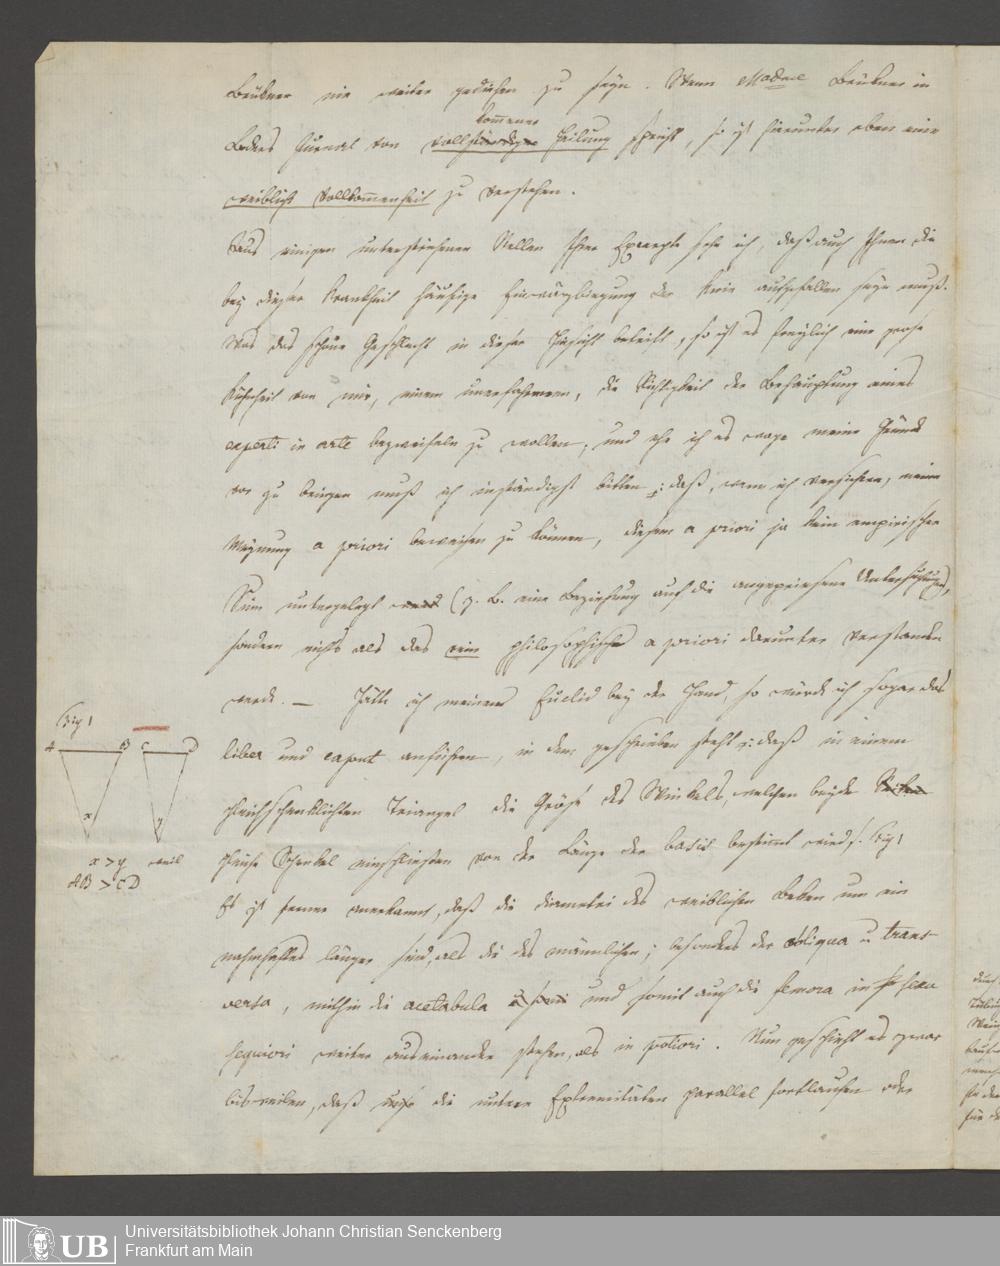 Brückner nie weiter gediehen zu seyn. Wenn Madme Brückner in
kommener
Loders Journal von vollständiger Heilung spricht, so ist hierunter eben eine
weiblich Vollkommenheit zu verstehen.
Aus einigen unterstrichenen Stellen Ihrer Excerpte sehe ich, daß auch Ihnen die
bey dieser Krankheit häufige Einwärtsbiegung der Knie aufgefallen seyn muß.
Was das schöne Geschlecht in dieser Hinsicht betrifft, so ist es freylich eine große
Kühnheit von mir, einem unerfahrenen, die Richtigkeit der Behauptung eines
experti in arte bezweifeln zu wollen; und ehe ich es wage meine Gründe
vor zu bringen muß ich inständigst bitten: daß, wenn ich versichere, meine
Meynung a priori beweisen zu können, diesem a priori ja kein empirischer
Sinn untergelegt werde (z. B. eine Beziehung auf die angepriesene Untersuchungen),
sondern nichts als das rein philosophische a priori darunter verstanden
werde. — Hätte ich meinen Euclid bey der Hand, so würde ich sogar das
liber und caput anführen, in dem geschrieben steht: daß in einem
gleichschenklichten Triangel die Größe des Winkels, welchen beyde Seiten
gleiche Schenkel einschließen von der Länge der basis bestimmt wird s. Fig 1
Es ist ferner anerkannt, daß die diametri des weiblichen Beken um ein
nahmhaftes länger sind, als die des männlichen; besonders der obliqua u trans
versa, mithin die acetabula und somit auch die femora in sexu
sequiori weiter auseinander stehen, als in potiori. Nun geschieht es zwar
bisweilen, daß die untere Extremitäten parallel fortlaufen oder
Fig 1
A B C D
x y
x > y weil
AB > CD
Universitätsbibliothek Johann Christian Senckenberg
Frankfurt am Main
UB